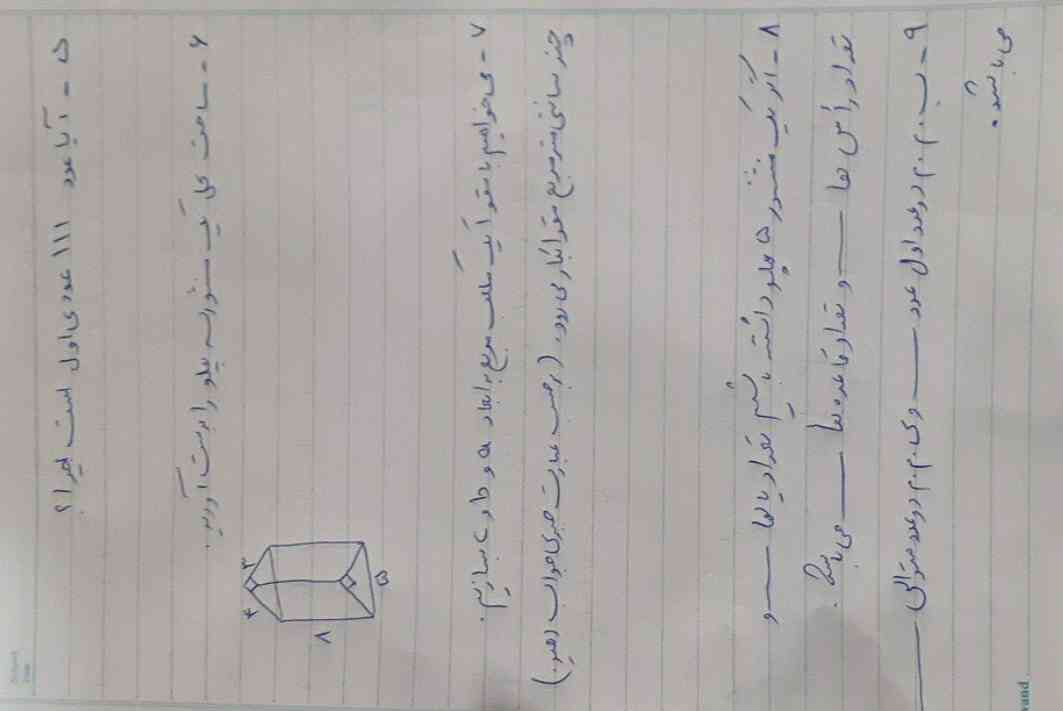 ۵ - آیا عدد ۱۱۱ عددی اول است چرا؟
۶ - مساحت کل یک منشور سه پهلو را بدست آورید.
۳
۴
۵
۸
۷ - می خواهیم با مقوا یک مکعب مربع به ابعاد a و b و c بسازیم.
چند سانتی متر مربع مقوا نیاز می رود. (برحسب عبارت جبری جواب دهید.)
۸ - اگر یک منشور ۵ پهلو داشته باشیم تعداد یالها ـــــ و
تعداد رأس ها ـــــ و تعداد قاعده ها ـــــ می باشد.
۹ - ب.م.م دو عدد اول عدد ـــــ و ک.م.م دو عدد متوالی ـــــ
می باشد.